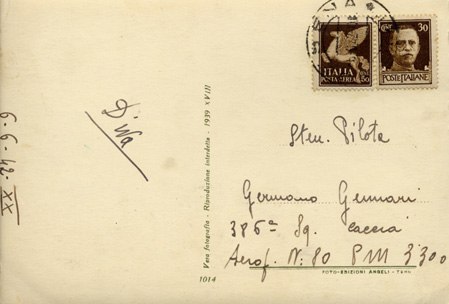 ITALIA
POSTA AEREA
50
CENT. 30
POSTE ITALIANE
6-6-42-XX
Vera fotografia - Riproduzione interdetta - 1939 XVIII
1014
Sten. Pilota
Germano Gennari
386ª Sq. Caccia
Aerof. N. 80 PM 3300
FOTO-EDIZIONI ANGELI - TERNI